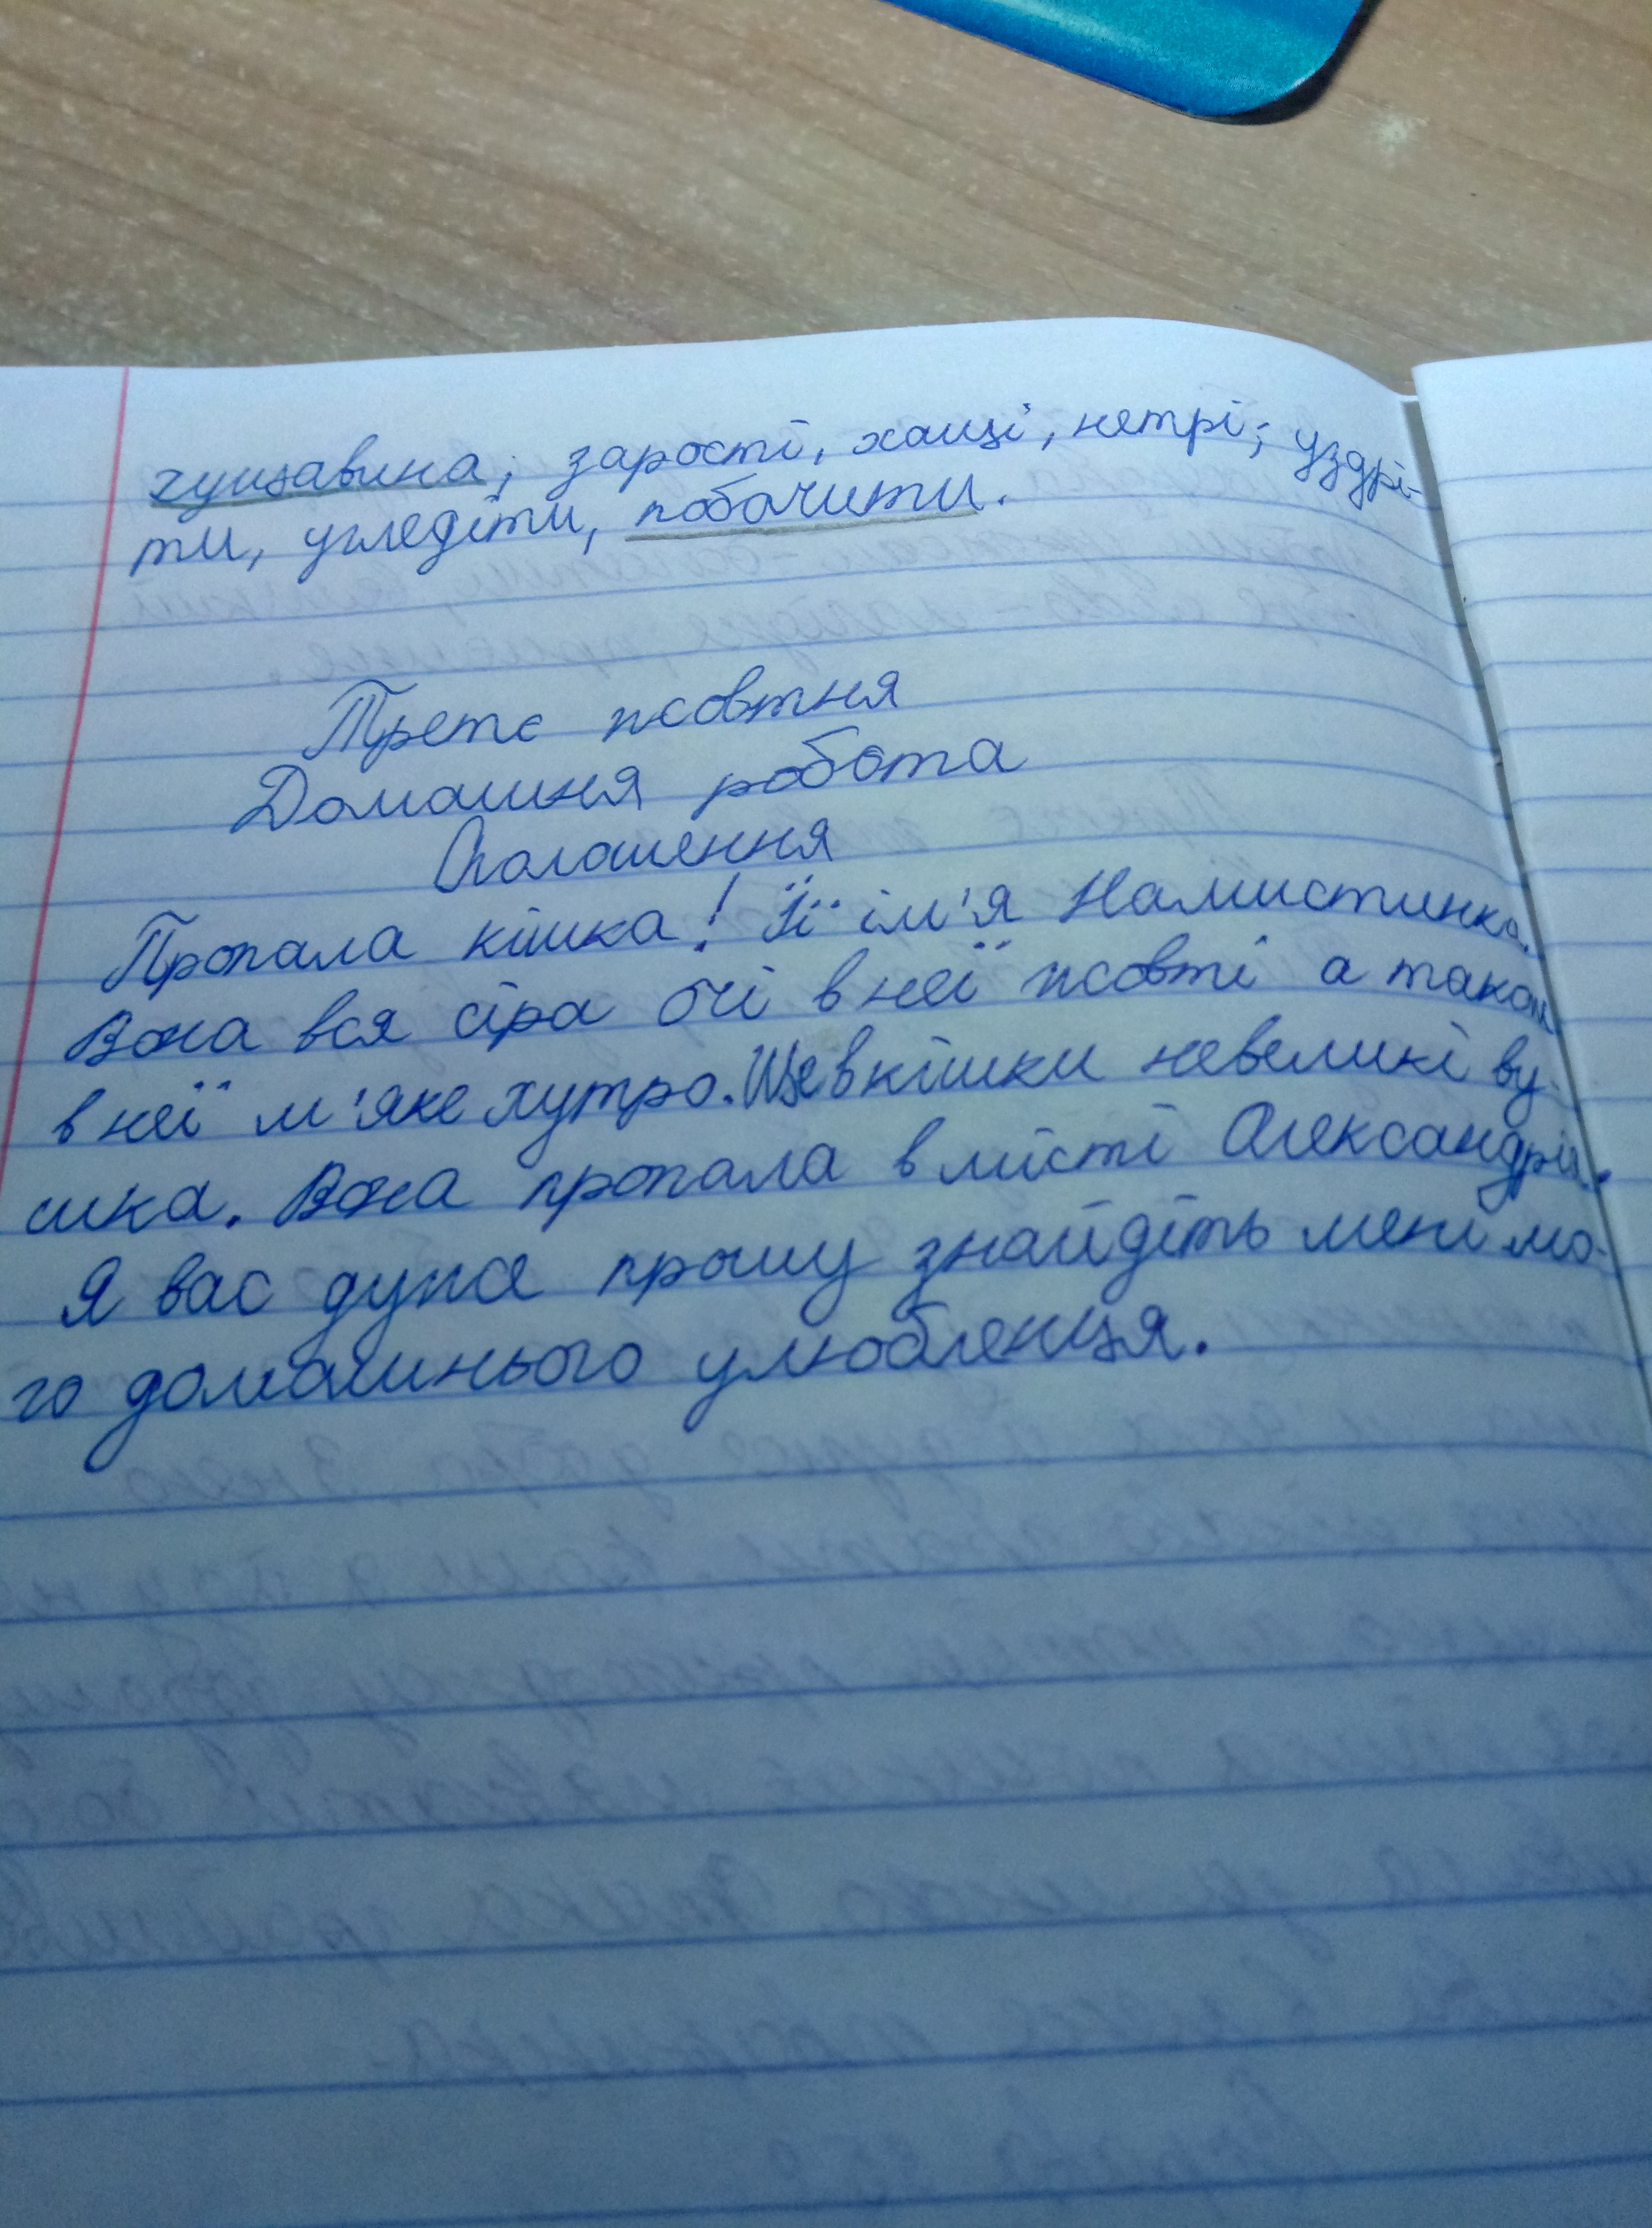 гущавина; зарості, хащі, нетрі; уздрі-
ти, угледіти, побачити.
Третє жовтня
Домашня робота
Оголошення
Пропала кішка! Її ім'я Намистинка.
Вона вся сіра очі в неї жовті а також
в неї м'яке хутро. Ще в кішки невеликі ву-
шка. Вона пропала в місті Олександрія.
Я вас дуже прошу знайдіть мені мо-
го домашнього улюбленця.